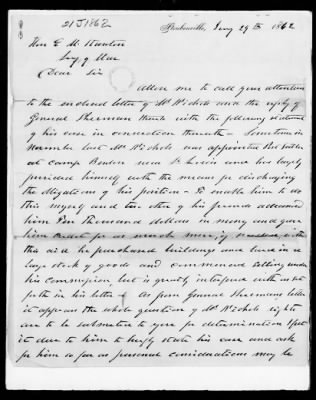 21 J 1862
Steubenville, Jany 29th 1862
Hon E. M. Stanton
Secy of War
Dear Sir
Allow me to call your attention
to the enclosed letter of Mr Nichols and the reply of
General Sherman thereto with the following statement
of his case in connection therewith - Sometime in
November last Mr Nichols was appointed Post Sutler
at Camp Benton near St Louis and has largely
provided himself with the means for discharging
the obligations of his position - To enable him to do
this myself and two other of his friends advanced
him Ten thousand dollars in money and gave
him credit for as much more, if needed with
this aid he purchased buildings and laid in a
large stock of goods and commenced selling under
his commission but is greatly interfered with as set
forth in his letter - As from General Shermans letter
it appears the whole question of Mr Nichols rights
are to be submitted to you for determination I feel
it due to him to briefly state his case and ask
for him so far as personal considerations may be